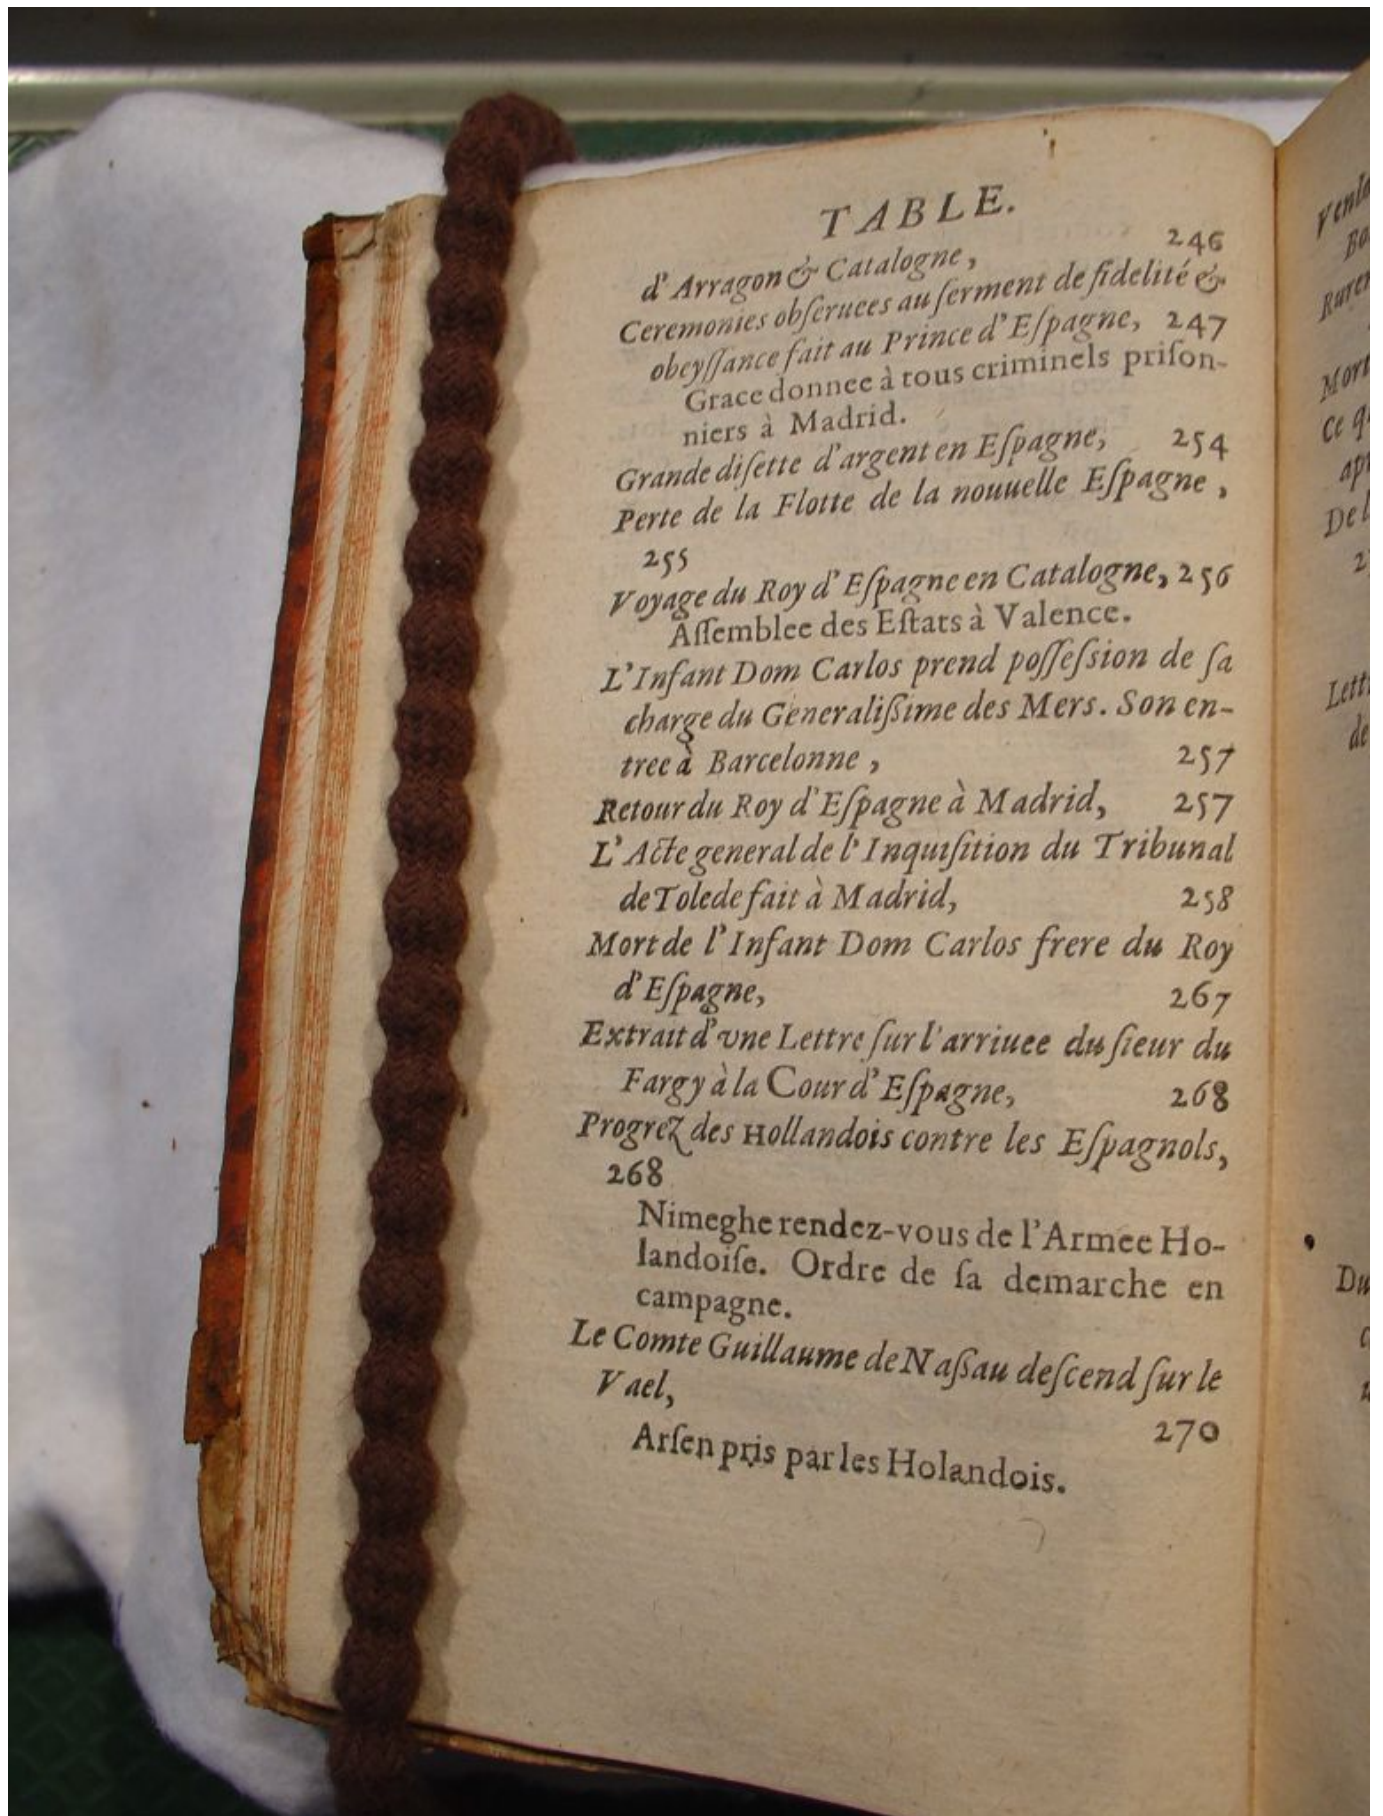 TABLE.
d'Arragon & Catalogne, 246
Ceremonies obſeruees au ſerment de fidelité &
obeyſſance fait au Prince d'Eſpagne, 247
Grace donnee à tous criminels priſon-
niers à Madrid.
Grande diſette d'argent en Eſpagne, 254
Perte de la Flotte de la nouuelle Eſpagne,
255
Voyage du Roy d'Eſpagne en Catalogne, 256
Aſſemblee des Eſtats à Valence.
L'Infant Dom Carlos prend poſſeſsion de ſa
charge du Generalißime des Mers. Son en-
tree à Barcelonne, 257
Retour du Roy d'Eſpagne à Madrid, 257
L'Acte general de l'Inquiſition du Tribunal
de Tolede fait à Madrid, 258
Mort de l'Infant Dom Carlos frere du Roy
d'Eſpagne, 267
Extrait d'vne Lettre ſur l'arriuee du ſieur du
Fargy à la Cour d'Eſpagne, 268
Progrez des Hollandois contre les Eſpagnols,
268
Nimeghe rendez-vous de l'Armee Ho-
landoiſe. Ordre de ſa demarche en
campagne.
Le Comte Guillaume de Naßau deſcend ſur le
Vael, 270
Arſen pris par les Holandois.
Mort
Ce
De
Du